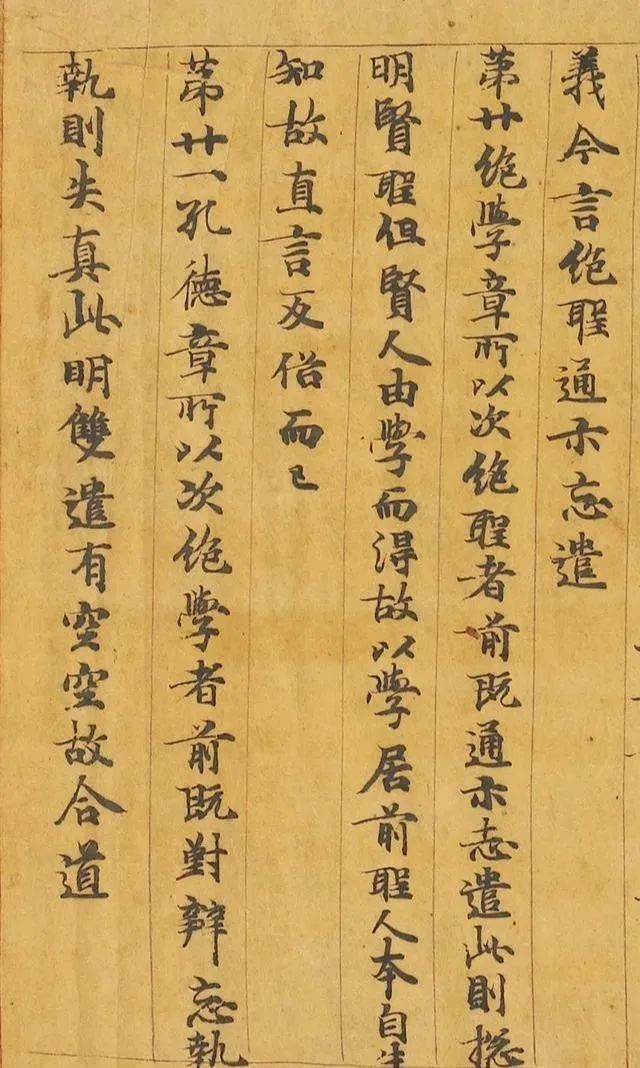 義今言絶聖通示忘遣
第廿絶學章所以次絶聖者前既通示忘遣此則揔
明賢聖但賢人由學而得故以學居前聖人本自生
知故直言反俗而已
第廿一孔德章所以次絶學者前既對辯忘執
執則失真此明雙遣有空空故合道